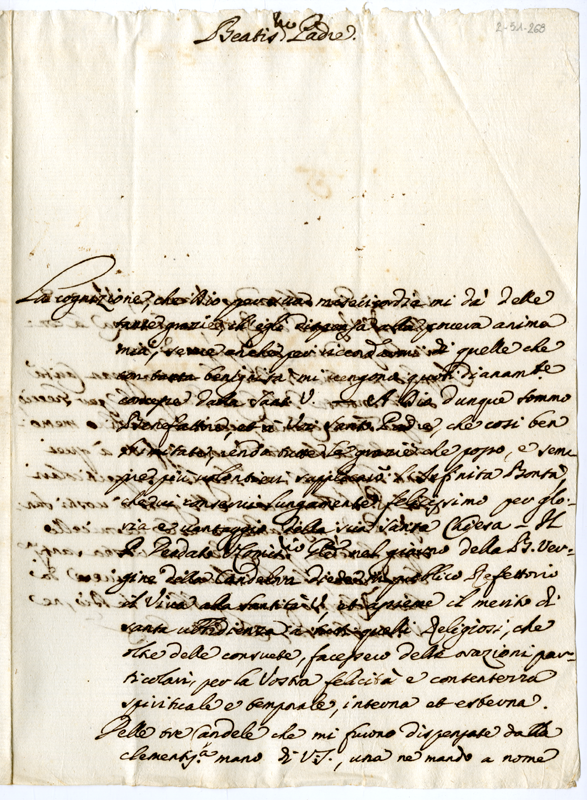 Beatis.mo Padre.
2-51-268
La cognizione, che Dio per sua misericordia mi dà delle
tante grazie, ch'egli dispensa alla povera anima
mia, serve anche per ricordarmi di quelle che
con tanta benignità mi vengono quotidianamte
dalla Santà V. A Dio dunque sommo
Benefattore, et a Voi Santo Padre, che così ben
imitate, rendo tutte le grazie che posso, e sem-
pre più volentieri l'Infinita Bontà
che vi conservi lungamente felicissimo per glo-
ria e vantaggio della sua Santa Chiesa - Il
P. nel giorno della SS. Ver-
gine della Candelora diede in pubblico Refettorio
il Viva alla Santità V., et assieme il merito di
santa ubbidienza a tutti quelli Religiosi, che
oltre delle consuete, facessero delle orazioni par-
ticolari, per la Vostra felicità e contentezza
spirituale e temporale, interna et esterna.
Delle tre Candele che mi furono dispensate dalla
clementis.a mano di V.S., una ne mando a nome